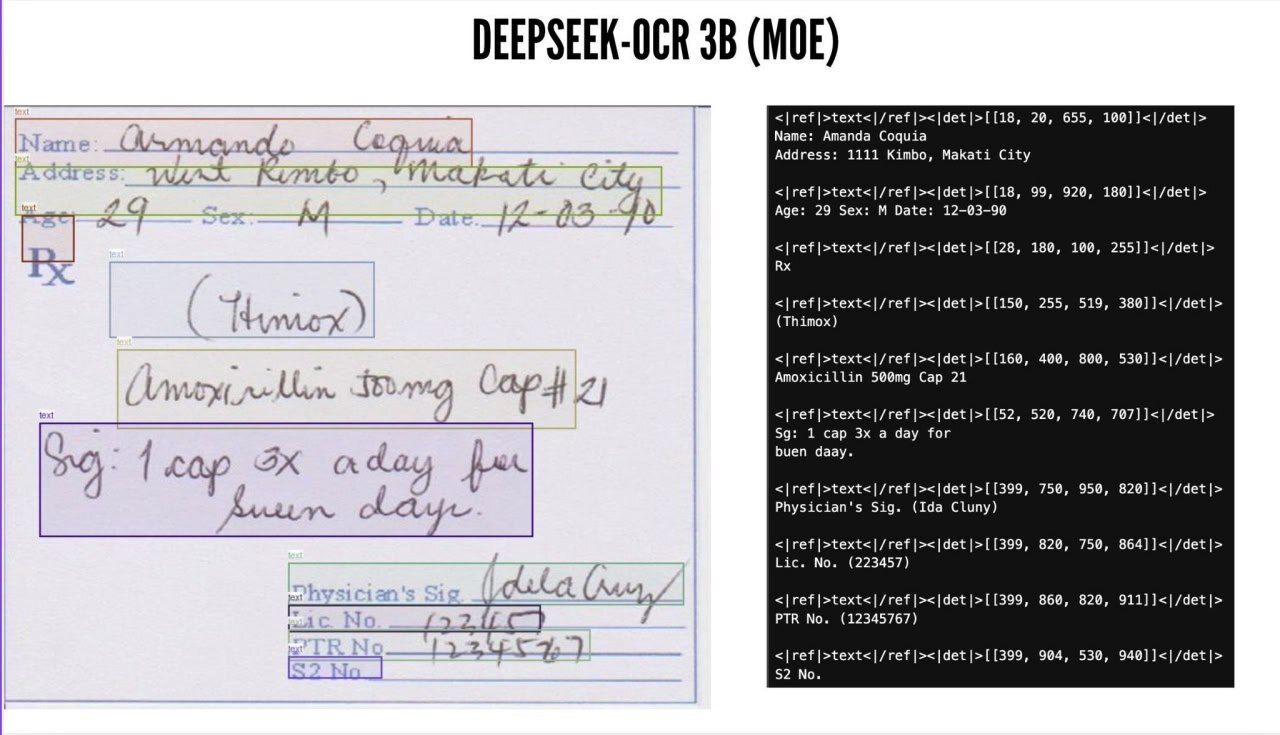 DEEPSEEK-OCR 3B (MOE)
text
Name: Armando Coquia
text
Address: West Rembo, Makati City
text
Age: 29 Sex: M Date: 12-03-90
Rx
text
(Himox)
text
Amoxicillin 500mg Cap # 21
text
Sig: 1 cap 3x a day for
seven days.
text
Physician's Sig. Jdela Cruz
text
Lic No. 12345
text
PTR No. 1234567
text
S2 No.
<|ref|>text<|/ref|><|det|>[[18, 20, 655, 100]]<|/det|>
Name: Amanda Coquia
Address: 1111 Kimbo, Makati City
<|ref|>text<|/ref|><|det|>[[18, 99, 920, 180]]<|/det|>
Age: 29 Sex: M Date: 12-03-90
<|ref|>text<|/ref|><|det|>[[28, 180, 100, 255]]<|/det|>
Rx
<|ref|>text<|/ref|><|det|>[[150, 255, 519, 380]]<|/det|>
(Thimox)
<|ref|>text<|/ref|><|det|>[[160, 400, 800, 530]]<|/det|>
Amoxicillin 500mg Cap 21
<|ref|>text<|/ref|><|det|>[[52, 520, 740, 707]]<|/det|>
Sg: 1 cap 3x a day for
buen daay.
<|ref|>text<|/ref|><|det|>[[399, 750, 950, 820]]<|/det|>
Physician's Sig. (Ida Cluny)
<|ref|>text<|/ref|><|det|>[[399, 820, 750, 864]]<|/det|>
Lic. No. (223457)
<|ref|>text<|/ref|><|det|>[[399, 860, 820, 911]]<|/det|>
PTR No. (12345767)
<|ref|>text<|/ref|><|det|>[[399, 904, 530, 940]]<|/det|>
S2 No.